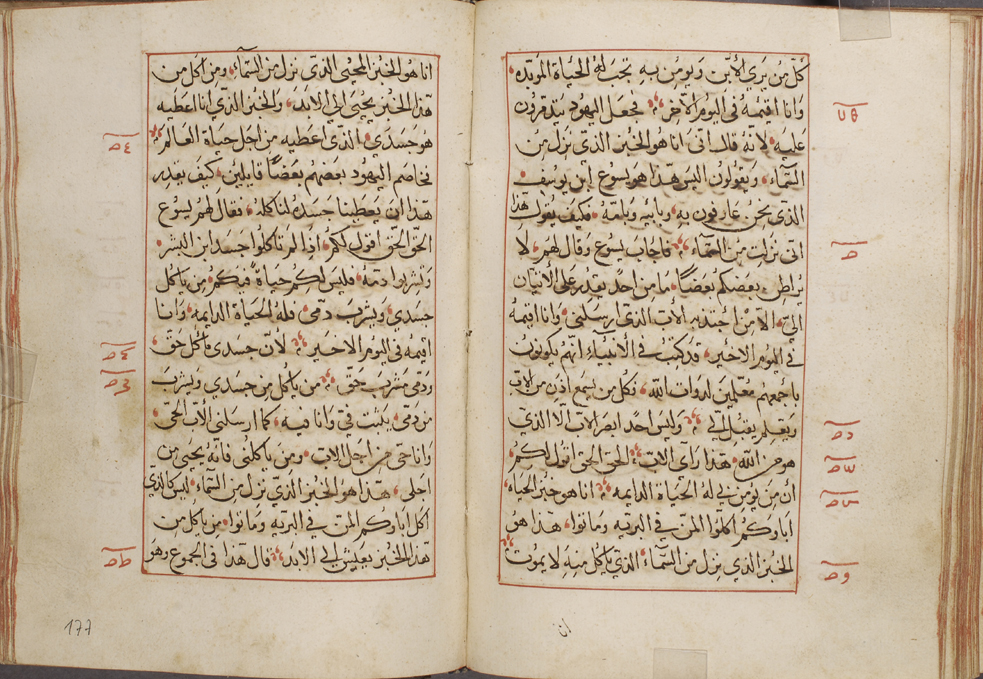 كل من يري الابن ويومن به تجب له الحياة الموبده
وانا اقيمه في اليوم الاخر فجعل اليهود يتذمرون
عليه لانه قال اني انا هو الخبز الذي نزل من
السماء ويقولون اليس هذا هو يسوع ابن يوسف
الذي نحن عارفون به وبابيه وبامه فكيف يقول هذا
اني نزلت من السماء فاجاب يسوع وقال لهم لا
يراطن بعضكم بعضا ما من احد يقدر علي الاتيان
الي الا من اجتذبه الاب الذي ارسلني وانا اقيمه
في اليوم الاخير قد كتب في الانبياء انهم يكونون
باجمعهم معلمين لدوات الله فكل من يسمع اذن من الاب
ويعلم يقبل الي وليس احد ابصر الاب الا الذي
هو من الله هذا راي الاب الحق الحق اقول لكم
ان من يومن بي له الحياة الدايمه انا هو خبز الحياه
اباوكم اكلوا المن في البريه وماتوا هذا هو
الخبز الذي نزل من السماء الذي ياكل منه لا يموت
ان
انا هو الخبز المحيي الذي نزل من السماء ومن اكل من
هذا الخبز يحيي الي الابد والخبز الذي انا اعطيه
هو جسدي الذي اعطيه من اجل حياة العالم
فخاصم اليهود بعضهم بعضا قايلين كيف يقدر
هذا ان يعطينا جسده لناكله فقال لهم يسوع
الحق الحق اقول لكم اذا لم تاكلوا جسد ابن البشر
وتشربوا دمه فليس لكم حياة فيكم من ياكل
جسدي ويشرب دمي فله الحياة الدايمه وانا
اقيمه في اليوم الاخير لان جسدي ماكل حق
ودمي مشرب حق من ياكل من جسدي ويشرب
من دمي يثبت في وانا فيه كما ارسلني الاب الحي
وانا حي من اجل الاب ومن ياكلني فانه يحيي من
اجلي هذا هو الخبز الذي نزل من السماء ليس كالذي
اكل اباوكم المن في البريه وماتوا من ياكل من
هذا الخبز يعيش الي الابد قال هذا في الجموع وهو
177